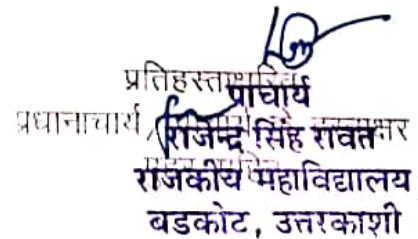 प्रतिहस्ताक्षरित
प्राचार्य
प्रधानाचार्य हस्ताक्षर
राजेन्द्र सिंह रावत
राजकीय महाविद्यालय
बडकोट, उत्तरकाशी